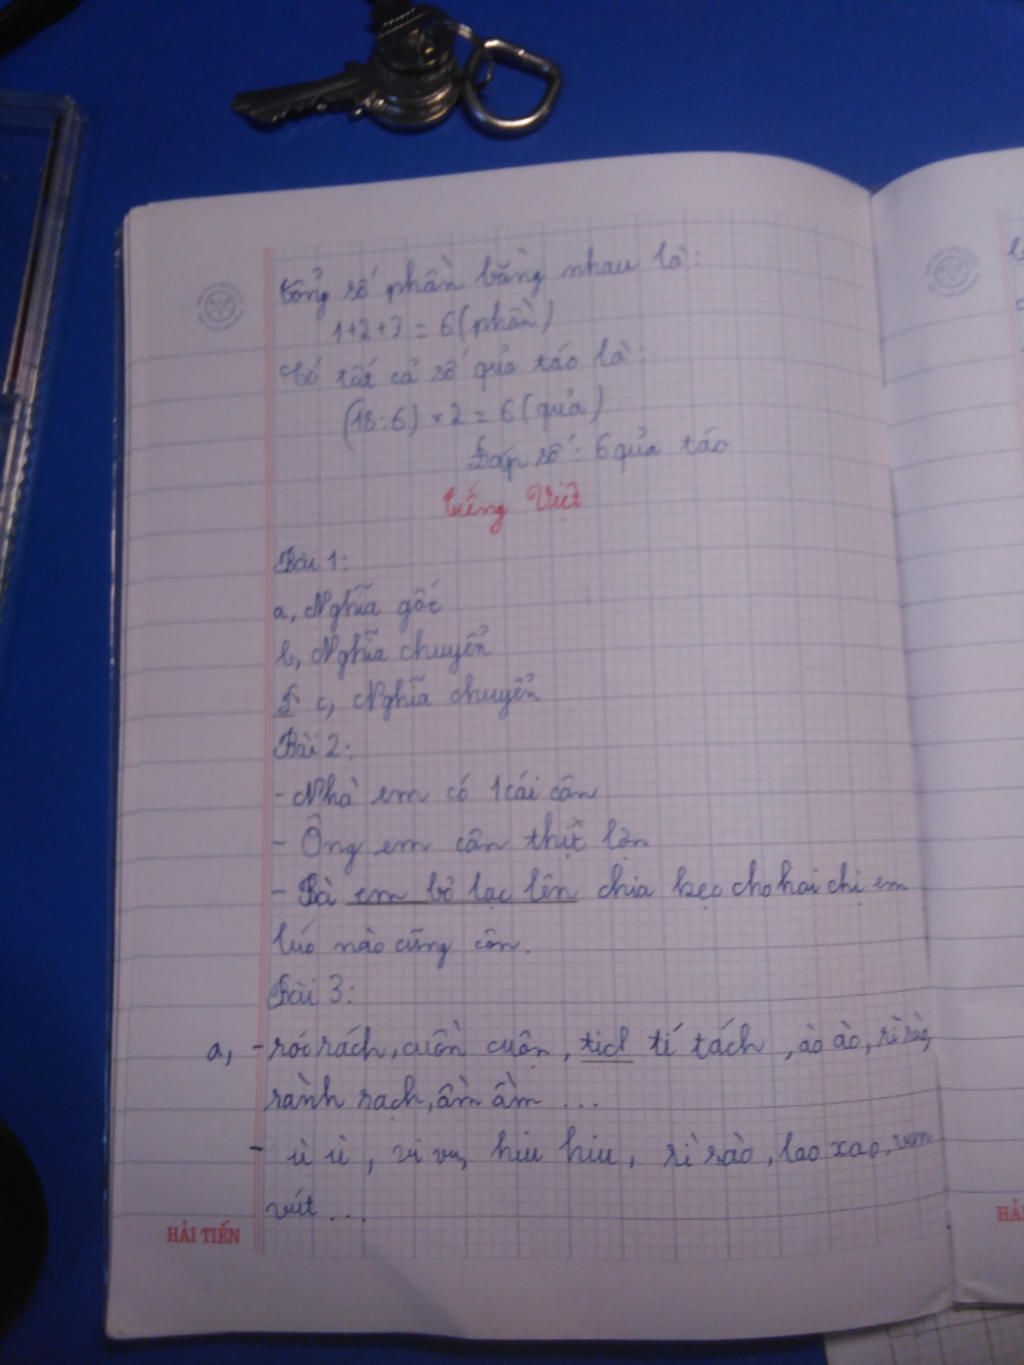 Tổng số phần bằng nhau là:
1+2+3 = 6 (phần)
Có tất cả số quả táo là:
(18:6) × 2 = 6 (quả)
Đáp số: 6 quả táo
Tiếng Việt
Bài 1:
a, Nghĩa gốc
b, Nghĩa chuyển
c, Nghĩa chuyển
Bài 2:
- Nhà em có 1 cái cân
- Ông em cân thịt lợn
- Bà em bỏ lạc lên chia kẹo cho hai chị em
lúc nào cũng cân.
Bài 3:
a, - róc rách, cuồn cuộn, tich tí tách, ào ào, rì rào,
rành rạch, ầm ầm ...
- ù ù, vi vu, hiu hiu, rì rào, lao xao, vun
vút ...
HẢI TIẾN